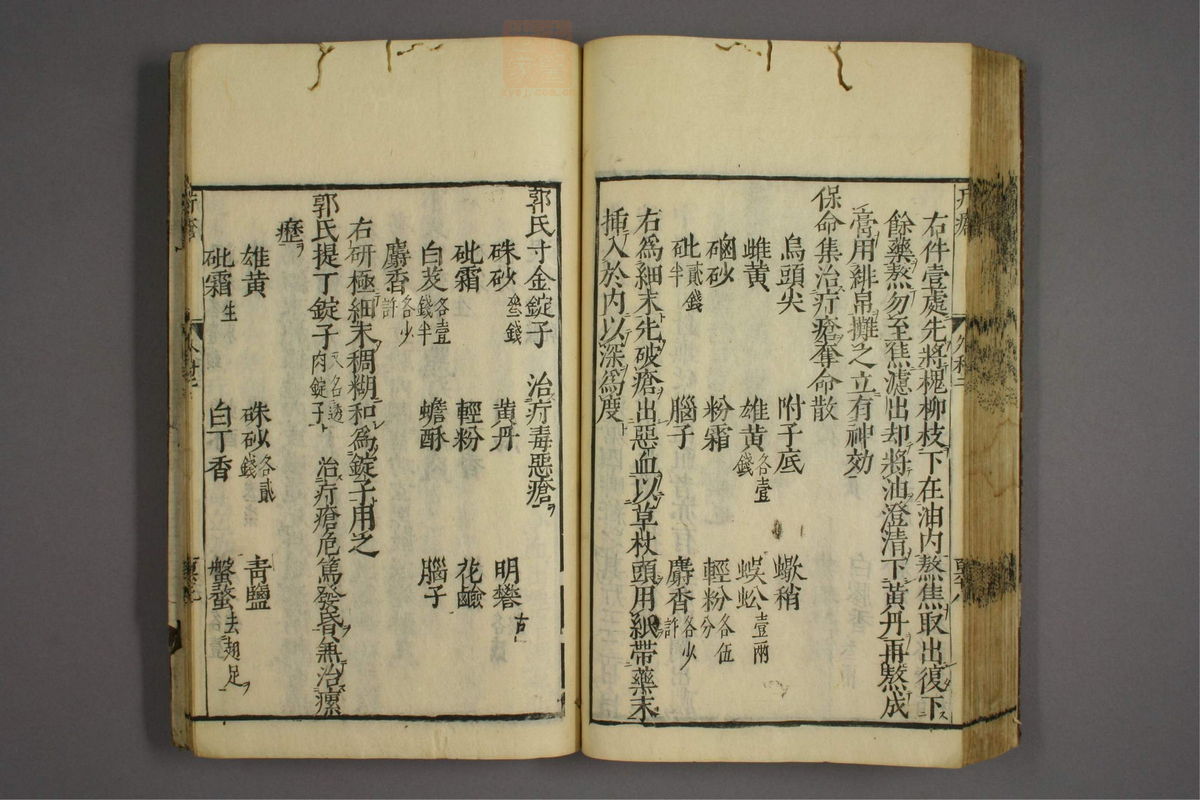 右件壹處先將槐柳枝下在油內熬焦取出復下
餘藥熬勿至焦濾出却將油澄清下黃丹再熬成
膏用緋帛攤之立有神効
保命集治疔瘡奪命散
烏頭尖 附子底 蠍稍
雌黃 雄黃各壹錢 蜈蚣壹兩
硇砂 粉霜 輕粉各伍分
砒貳錢半 腦子 麝香各少許
右爲細末先破瘡出惡血以草杖頭用紙帶藥末
揷入於內以深爲度
郭氏寸金錠子 治疔毒惡瘡ヲ
硃砂叁錢 黃丹 明礬
砒霜 輕粉 花鹼
白芨各壹錢半 蟾酥 腦子
麝香各少許
右研極細末稠糊和爲錠子用之
郭氏提丁錠子又名透肉錠子 治疔瘡危篤發昏無治瘰
癧ヲ
雄黃 硃砂各貳錢 靑鹽
砒霜生 白丁香 蟹蝥去翅足